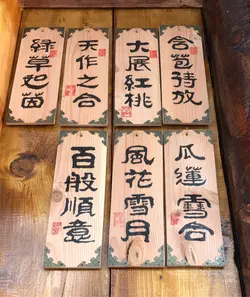 綠草如茵
天作之合
大展紅桃
含苞待放
百般順意
風花雪月
瓜蓮雪合